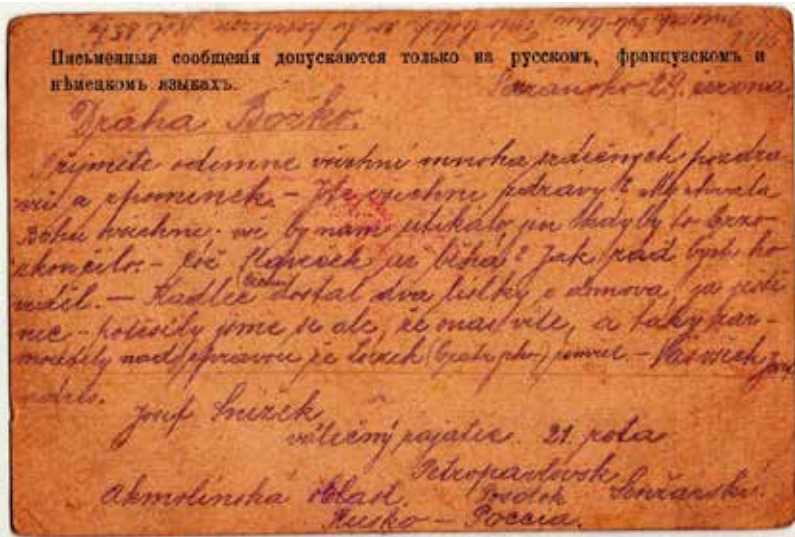 Письменныя сообщенія допускаются только на русскомъ, французскомъ и
нѣмецкомъ языкахъ.
29. června
Draha Božko.
Přijmite odemne všichni mnoho srdečných pozdra
vů a zpominek. – Jste všichni zdravy? My chvala
Bohu všichni. by nam utíkalo jen kdyby to brzo
skončilo. – Slaviček již běhá? Jak rád bych ho
viděl. – Kadlec dostal dva listky z domova, ja ještě
nic – potěšily jsme se ale, že o nas víte, a taky zar-
moutily nad zpravou že – Vás všech
Josef Snížek
válečný zajatec. 21. rota
Petropavlovsk
Akmolinská oblast.
Rusko – Россia.